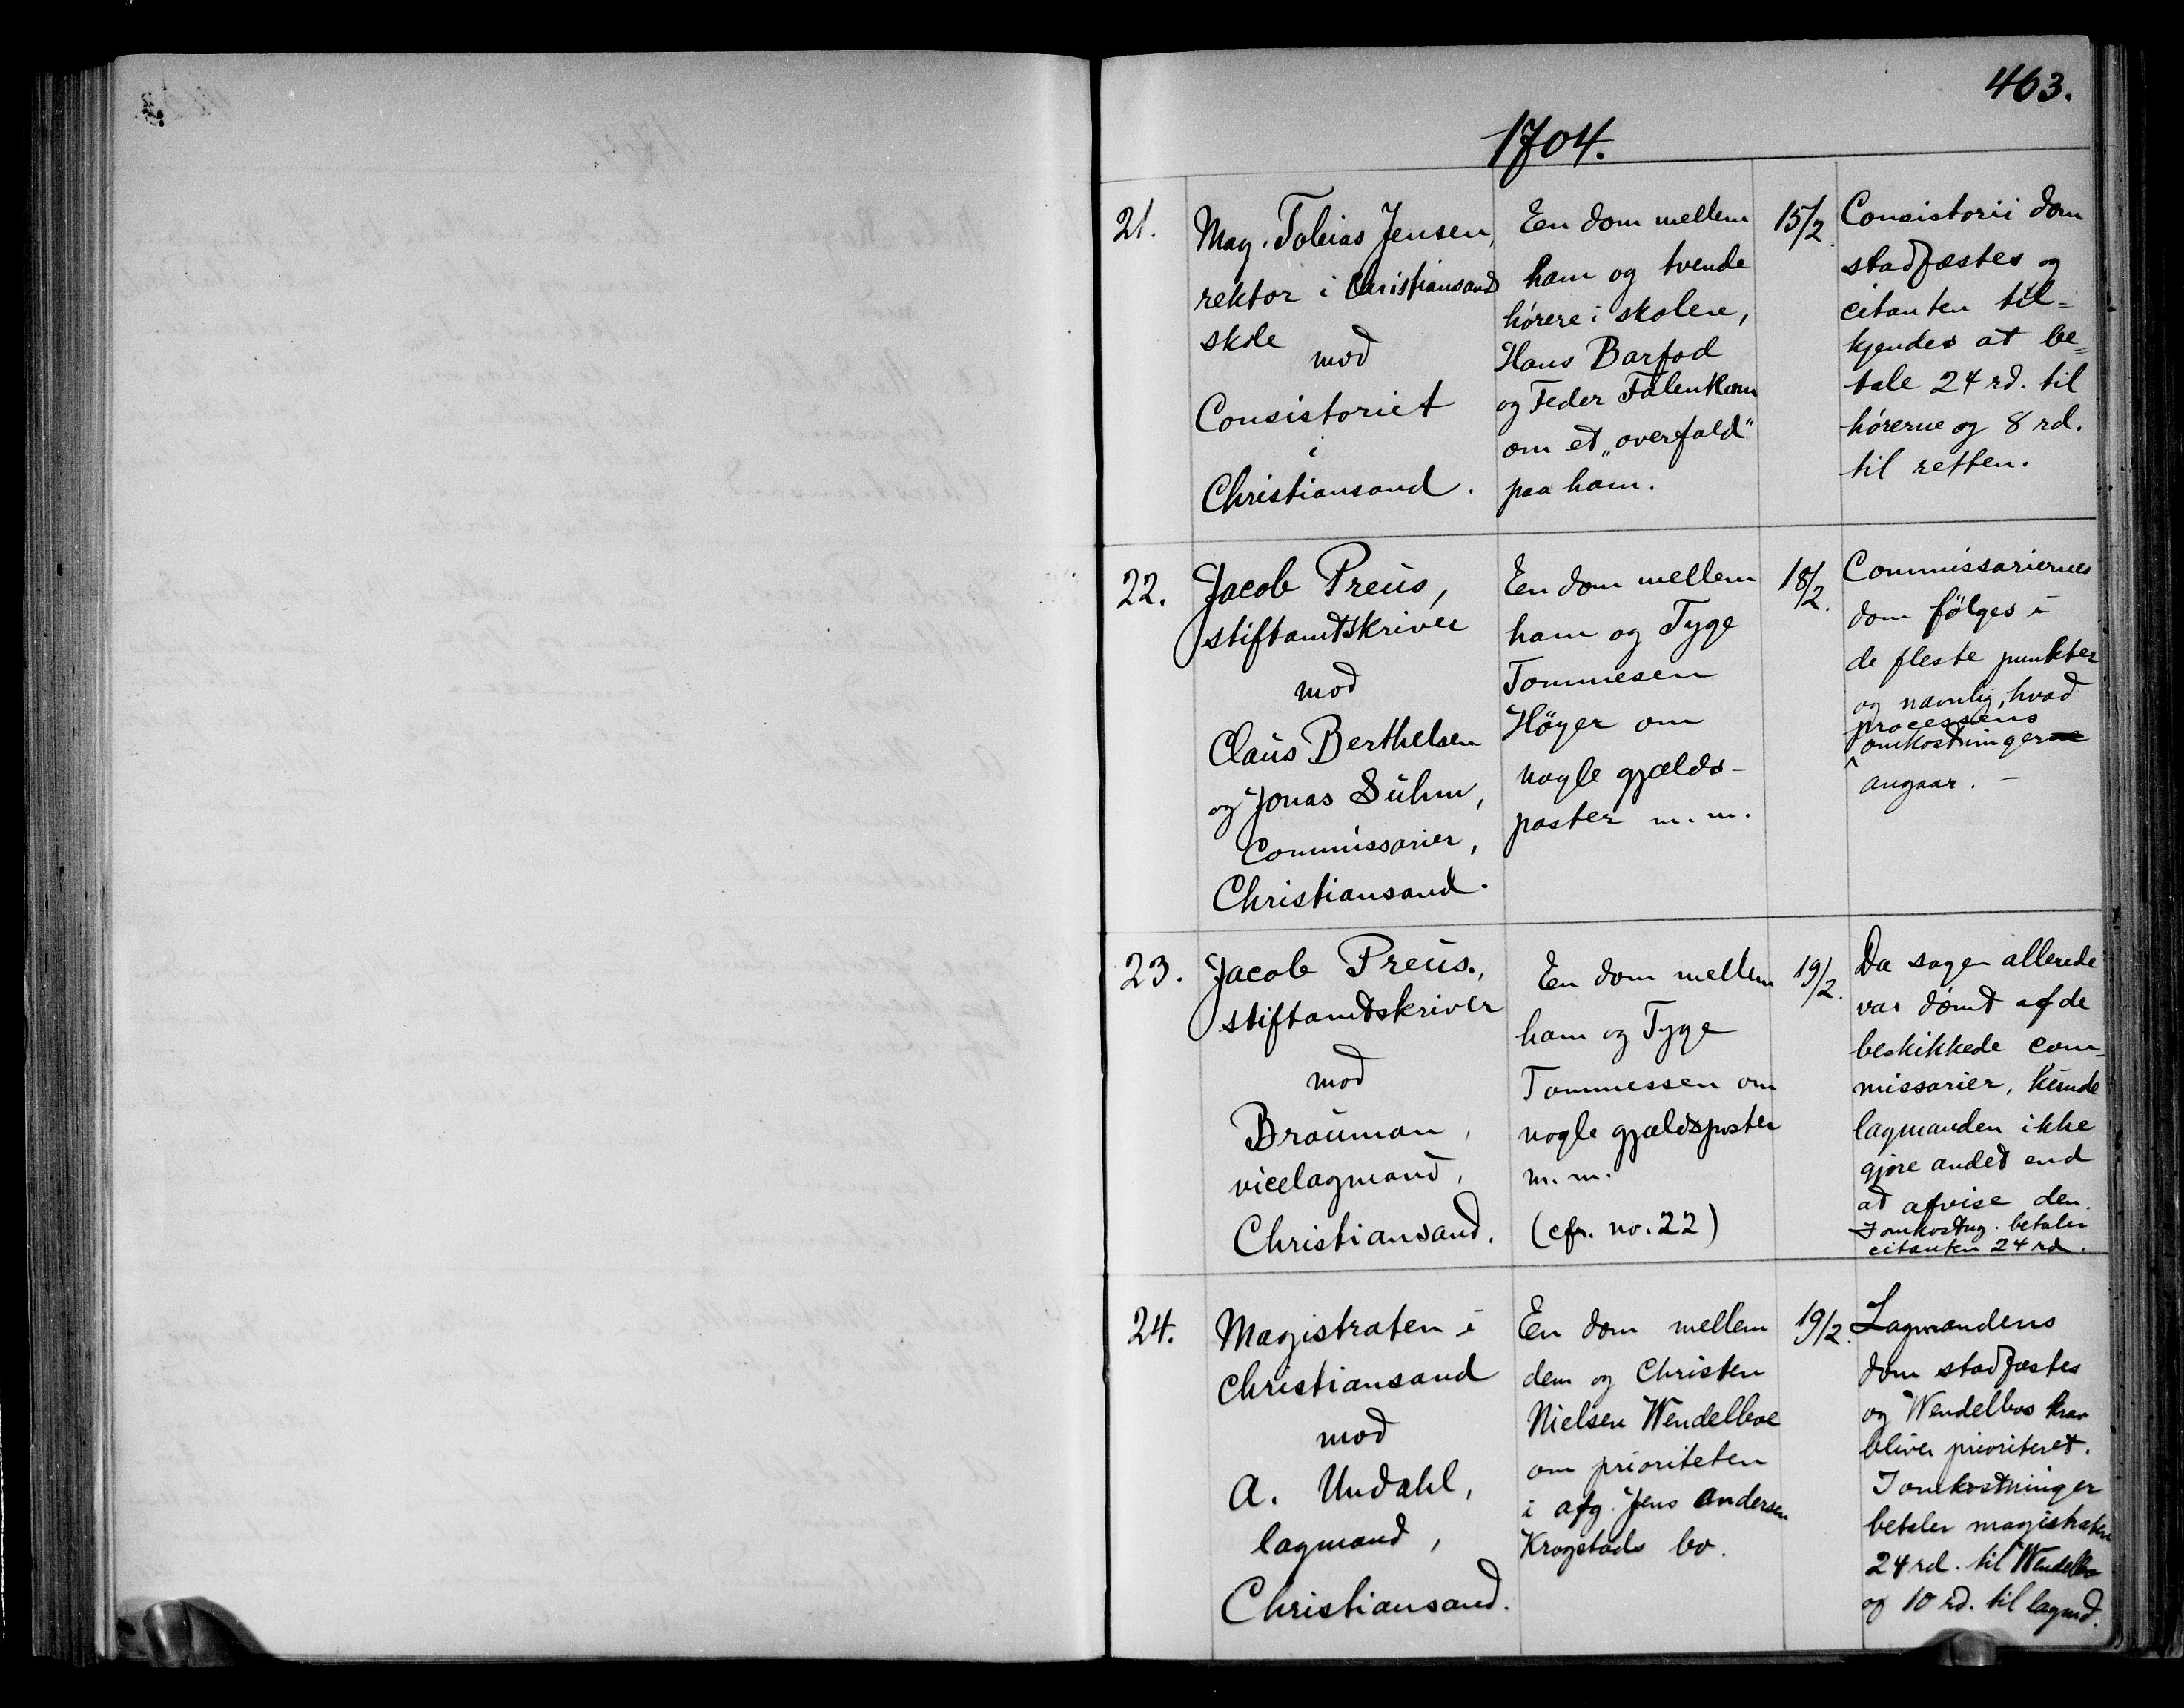 463.
1704.
21.
Mag. Tobias Jensen,
rektor i Christiansand
skole
mod
Consistoriet
i
Christiansand.
En dom mellem
ham og tvende
hørere i skolen,
Hans Barfod
og Peder Falenkam
om et „overfald"
paa ham.
15/2.
Consistorii dom
stadfæstes og
citanten til=
kjendes at be=
tale 24 rd. til
hørerne og 8 rd.
til retten.
22.
Jacob Preus,
stiftamtskriver
mod
Claus Berthelsen
og Jonas Suhm,
Commissarier,
Christiansand.
En dom mellem
ham og Tyge
Tommesen
Höyer om
nogle gjælds-
poster m. m.
18/2.
Commissariernes
dom følges i
de fleste punkter
og navnlig, hvad
processens
omkostninger
angaar. —
23.
Jacob Preus.,
stiftamtskriver
mod
Brouman,
vicelagmand,
Christiansand.
En dom mellem
ham og Tyge
Tommessen om
nogle gjældsposter
m. m.
(cfr. no. 22)
19/2.
Da sagen allerede
var dømt af de
beskikkede com-
missarier, kunde
lagmanden ikke
gjøre andet end
at afvise den.
I omkostng. betaler
citanten 24 rd.
24.
Magistraten i
Christiansand
mod
A. Undahl,
lagmand,
Christiansand.
En dom mellem
dem og Christen
Nielsen Wendelboe
om prioriteten
i afg. Jens Andersen
Krogstads bo.
19/2.
Lagmandens
dom stadfæstes
og Wendelbos krav
bliver prioriteret.
I omkostninger
betaler magistraten
24 rd. til Wendelbo
og 10 rd. til lagmd.